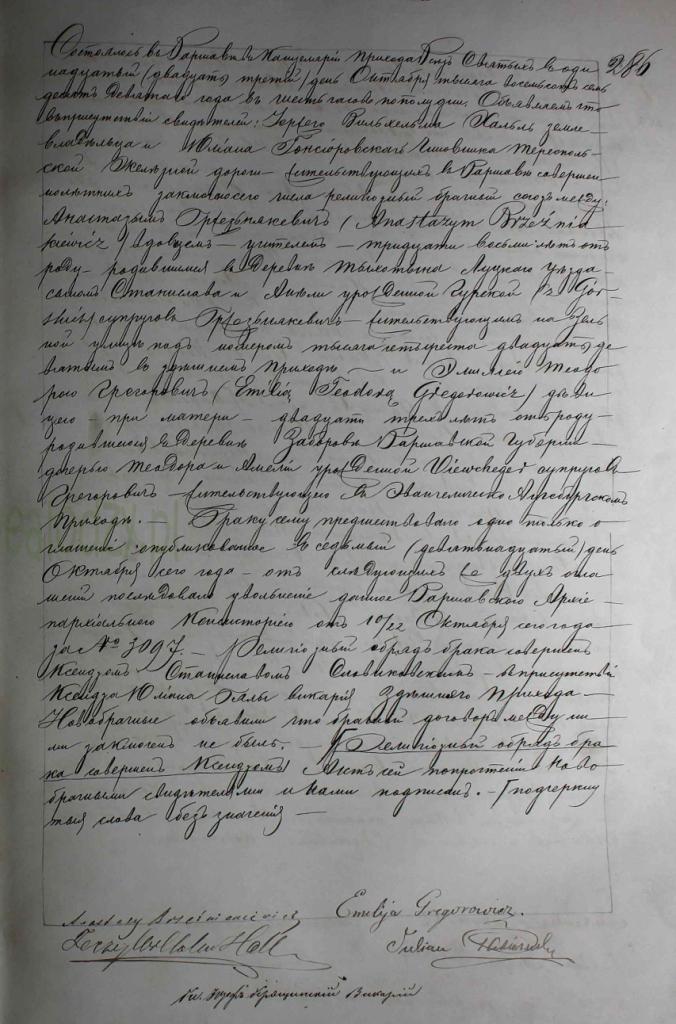 286
Состоялось въ Варшавѣ въ Канцеляріи прихода Всѣхъ Святыхъ въ оди
надцатый (двадцать третій) день Октября тысяча восемьсотъ семь
десятъ девятаго года въ шесть часовъ по полудни. Объявляемъ что
въ присутствіи свидѣтелей: Вильхельма Халль земле-
владѣльца и Юліана чиновника Тереополь-
ской Желѣзной дороги – жительствующихъ въ Варшавѣ совершен
нолѣтнихъ заключенъ сего числа религіозный брачный союзъ между:
Анастазымъ Бржезьнякевичъ (Anastazym Brzeźnia
kiewicz) вдовцемъ – учителемъ – тридцати восьми лѣтъ отъ
роду – родившимся въ деревнѣ Луцкаго уѣзда –
сыномъ Станислава и Анели урожденной Гурской (z Gór-
skich) супруговъ Бржезьнякевичъ – жительствующимъ на
улицѣ подъ номеромъ тысяча четыреста двадцать де
вятымъ въ здѣшнемъ приходѣ – и Эмиліею Теодо
рою Грегоровичъ (Emilią Teodorą Gregorowicz) дѣви
цею – при матери – двадцати трехъ лѣтъ отъ роду –
родившеюся въ деревнѣ Заборовѣ Варшавской Губерніи –
дочерью Теодора и Амеліи урожденной Viewcheger супруговъ
Грегоровичъ – жительствующею въ Евангелическо Аугсбургскомъ
приходѣ. – Браку сему предшествовало одно только о
глашеніе опубликованное въ седьмый (девятнадцатый) день
Октября сего года – отъ слѣдующихъ же двухъ огла
шеній послѣдовало увольненіе данное Варшавскою Архіе-
пархіальною Консисторіею отъ 10/22 Октября сего года
за № 3097. – Религіозный обрядъ брака совершенъ
Ксендзомъ Станиславомъ Словиковскимъ – въ присутствіи
Ксендза Юліана викарія здѣшняго прихода –
Новобрачные объявили что брачный договоръ между ни
ми заключенъ не былъ. – (Религіозный обрядъ бра
ка совершенъ Ксендзомъ) Актъ сей по прочтеніи ново
брачными свидѣтелями и нами подписанъ. – (подчеркну
тыя слова безъ значенія –
Anastazy Brzeźniakiewicz
Emilija Gregorowicz.
Jerzy Wilhelm Hall
Julian
Кс. Іозефъ Викарій